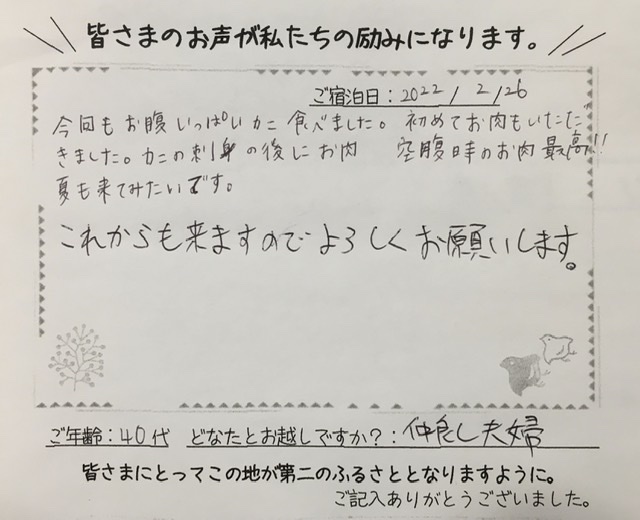 皆さまのお声が私たちの励みになります。
ご宿泊日：2022/2/26
今回もお腹いっぱいカニ食べました。 初めてお肉もいただ
きました。カニの刺身の後にお肉 空腹時のお肉最高!!
夏も来てみたいです。
これからも来ますのでよろしくお願いします。
ご年齢：40代 どなたとお越しですか？：仲良し夫婦
皆さまにとってこの地が第二のふるさととなりますように。
ご記入ありがとうございました。